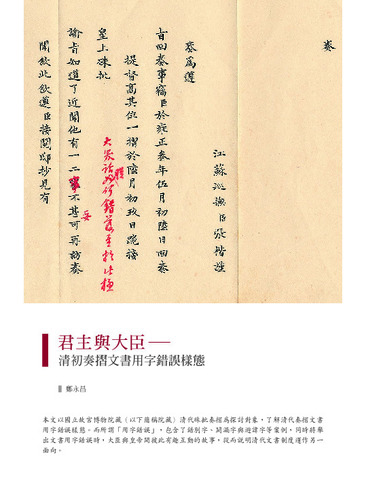 奏
江蘇巡撫臣張楷謹
奏為遵
旨回奏事竊臣於雍正叁年伍月初陸日回奏
提督高其位一摺於陸月初玖日跪
皇上硃批
何錯至於此極
諭旨知道了近聞他有一二不甚妥可再訪奏
聞欽此欽遵臣接閱邸抄見有
君主與大臣──
清初奏摺文書用字錯誤樣態
鄭永昌
本文以國立故宮博物院藏（以下簡稱院藏）清代硃批奏摺為探討對象，了解清代奏摺文書
用字錯誤樣態。而所謂「用字錯誤」，包含了錯別字、闕漏字與避諱字等案例，同時將舉
出文書用字錯誤時，大臣與皇帝間彼此有趣互動的故事，從而說明清代文書制度運作另一
面向。